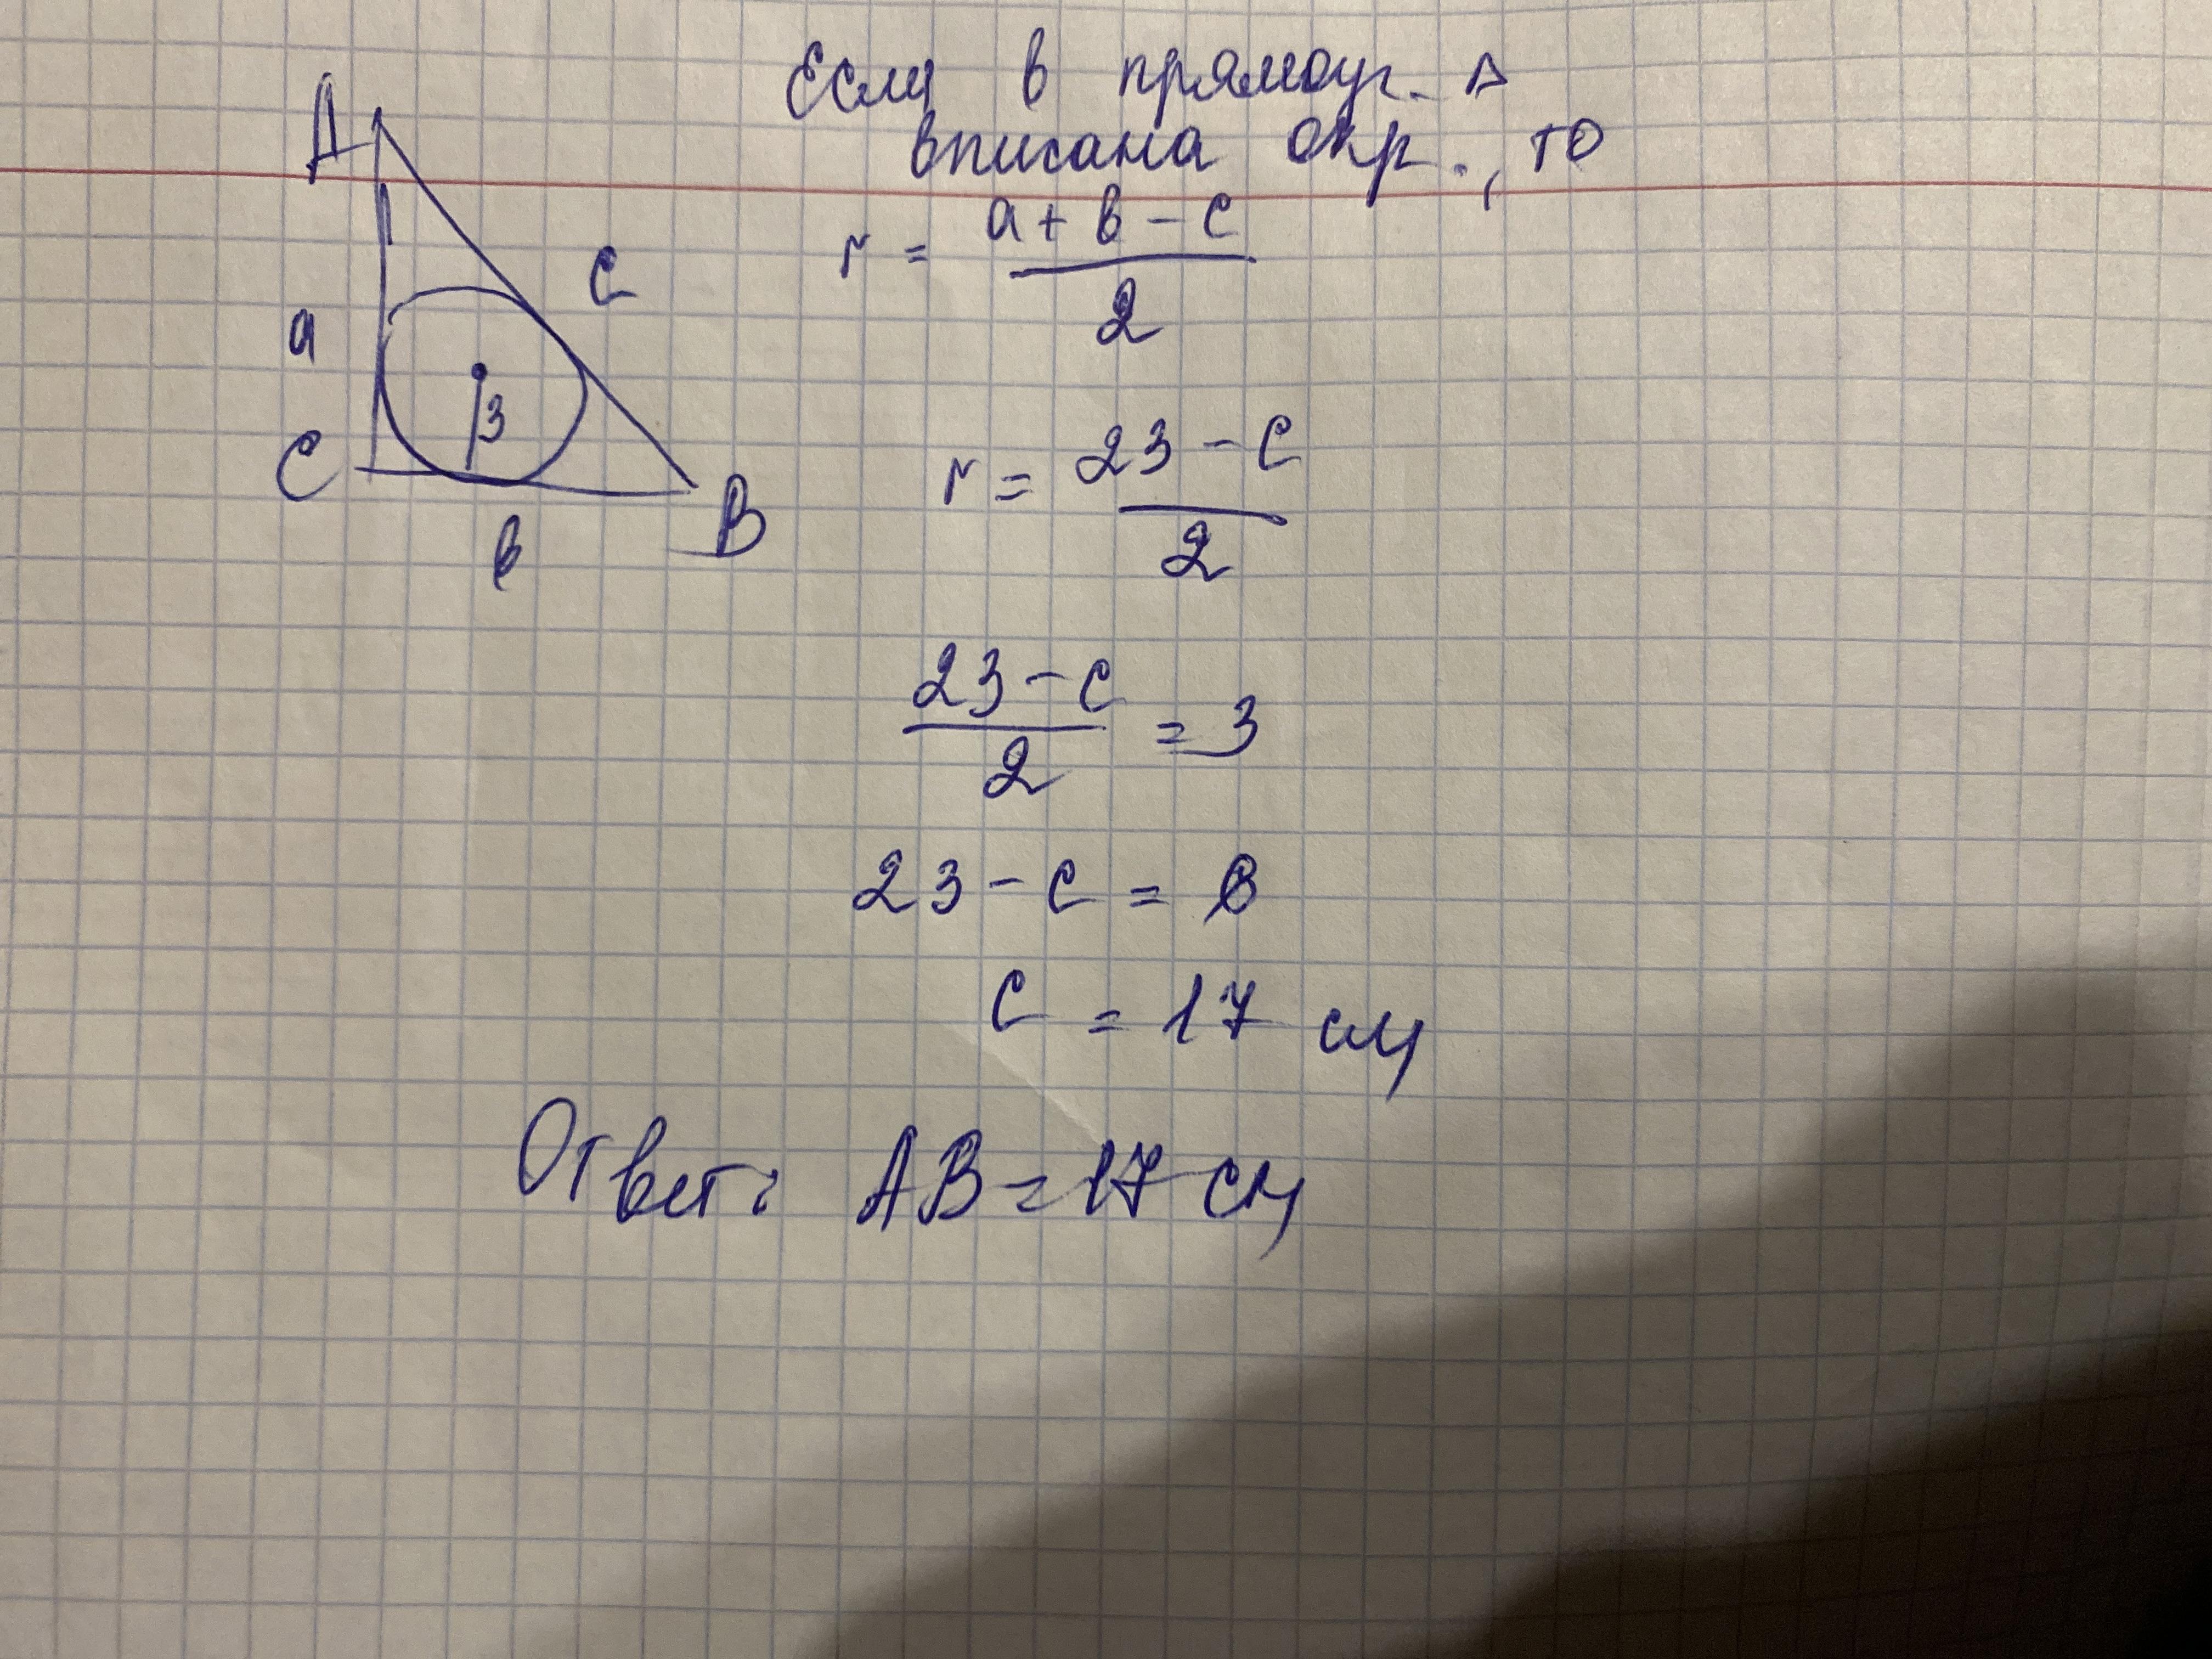 Если в прямоуг. Δ
вписана окр., то
r = a + b - c / 2
r = 23 - c / 2
23 - c / 2 = 3
23 - c = 6
c = 17 см
Ответ: AB = 17 см
A
a
c
3
C
B
b